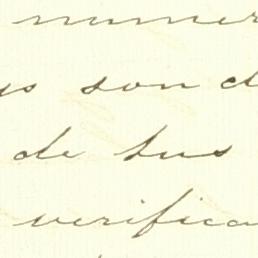 numer
us son d
de sus
verifica